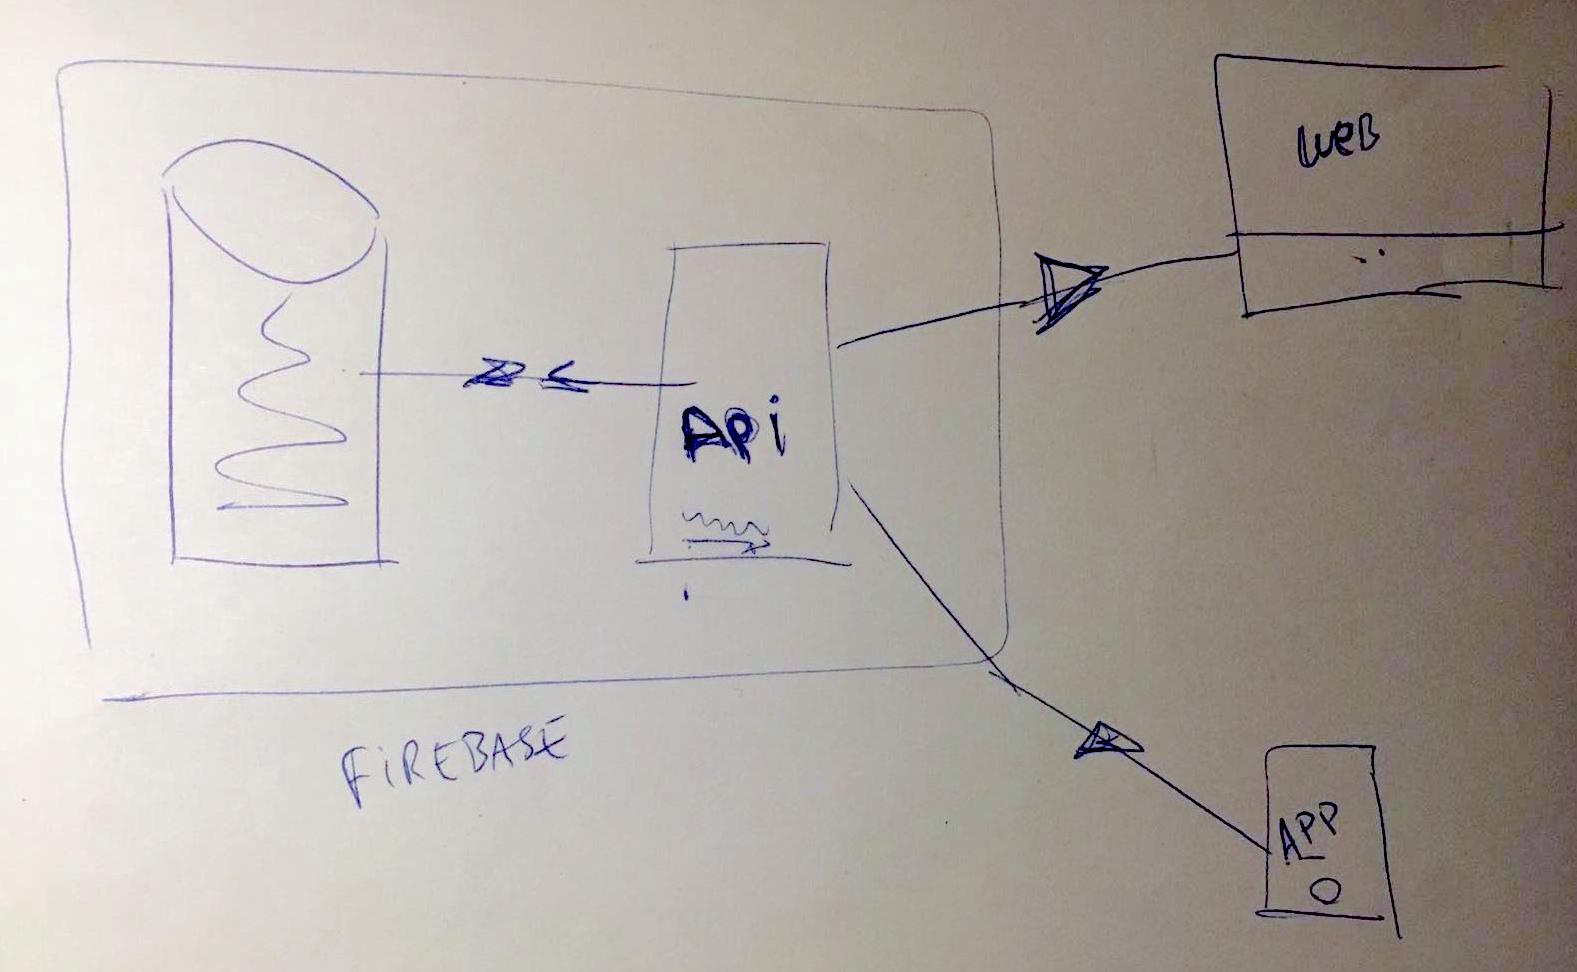 WEB
Api
FiREBASE
APP